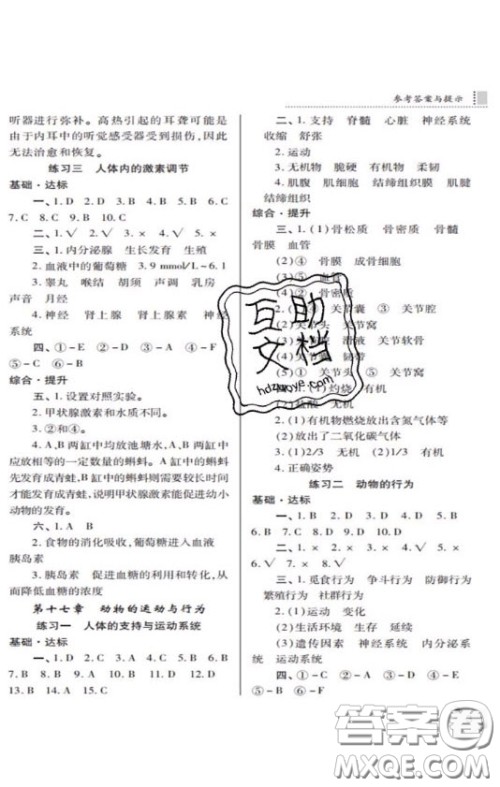 参考答案与提示
听器进行弥补。高热引起的耳聋可能是
由于内耳中的听觉感受器受到损伤,因此
无法治愈和恢复。
练习三 人体内的激素调节
基础·达标
一、1. D 2. D 3. C 4. B 5. D 6. C
7. C 8. C 9. D 10. A
二、1. √ 2. × 3. ×
三、1. 内分泌腺 生长发育 生殖
2. 血液中的葡萄糖 3.9 mmol/L~6.1
3. 睾丸 喉结 胡须 声调 乳房
声音 月经
4. 神经 肾上腺 肾上腺素 神经
系统
四、①-E ②-D ③-A ④-F
⑤-C ⑥-B
综合·提升
一、1. 设置对照实验。
2. 甲状腺激素和大小不同。
3. ②和④。
4. A、B两缸中均放池塘水,A、B两缸中
应放相等的一定数量的蝌蚪。A缸中的蝌蚪
先发育成青蛙,B缸中的蝌蚪则需要较长时间
才能发育成青蛙,说明甲状腺激素能促进幼小
动物的发育。
六、1. A—C—B
2. 食物的消化吸收,葡萄糖进入血液
胰岛素
3. 胰岛素 促进血糖的利用和转化,从
而降低血糖的浓度
第十七章 动物的运动与行为
练习一 人体的支持与运动系统
基础·达标
一、1. D 2. A 3. D 4. B 5. D 6. B
7. D 8. B 9. A 10. D 11. D 12. D
13. B 14. A 15. C
二、1. 支持 脊髓 心脏 神经系统
收缩 舒张
2. 运动
3. 无机物 脆硬 有机物 柔韧
4. 肌腹 肌细胞 结缔组织膜 肌腱
结缔组织
综合·提升
一、1. (1) 骨松质 骨密质 骨髓
骨膜 血管
(2) ④ 骨膜 成骨细胞
(3) ② 骨密质
2. (1) ④ 关节囊 ③ 关节腔
(2) ① 关节头 ⑤ 关节窝
(3) ② 关节软骨
(4) 关节头 关节窝
(5) ① 关节头 ⑤ 关节窝
三、1. (1) 灼烧 有机
盐酸 无机
2. (1) 有机物燃烧放出含氮气体等
(2) 放出了二氧化碳气体
3. (1) 2/3 无机 (2) 1/3 有机
4. 正确姿势
练习二 动物的行为
基础·达标
一、1. D 2. B 3. B 4. C 5. B
6. D 7. B 8. D 9. D 10. D
二、1. √ 2. × 3. √ 4. √
三、1. 觅食行为 争斗行为 防御行为
繁殖行为 社群行为
2. (1) 运动 变化
(2) 生活环境 生存 延续
(3) 遗传因素 神经系统 内分泌系
统 运动系统
四、①-E ②-C ③-A ④-D
⑤-B ⑥-F
互助
文档
hdzuoye.com
答案圈
MXQE.COM